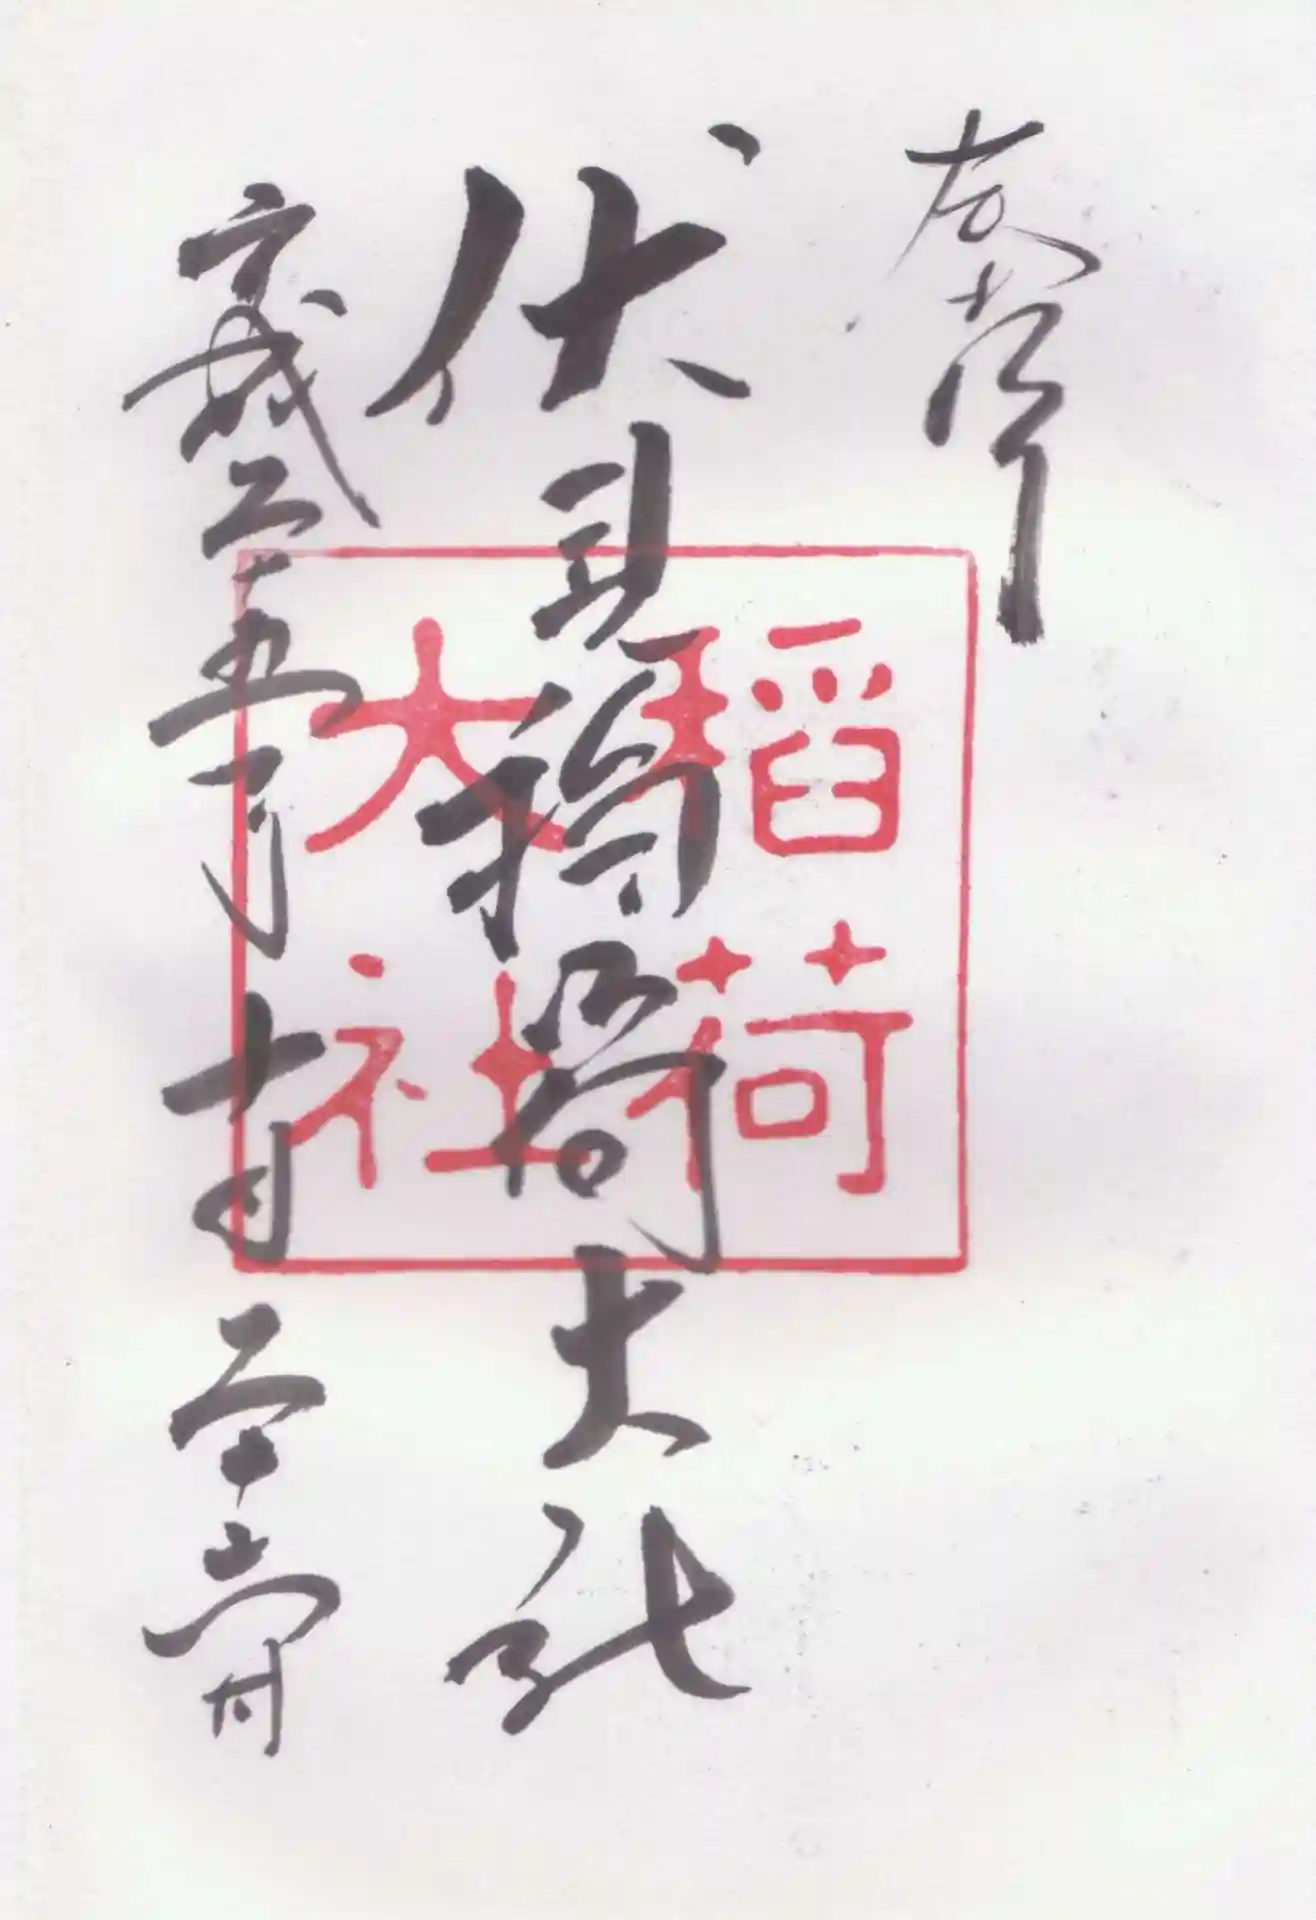 奉拝
伏見稲荷大社
平成二十五年十一月二十六日
稲荷
大社